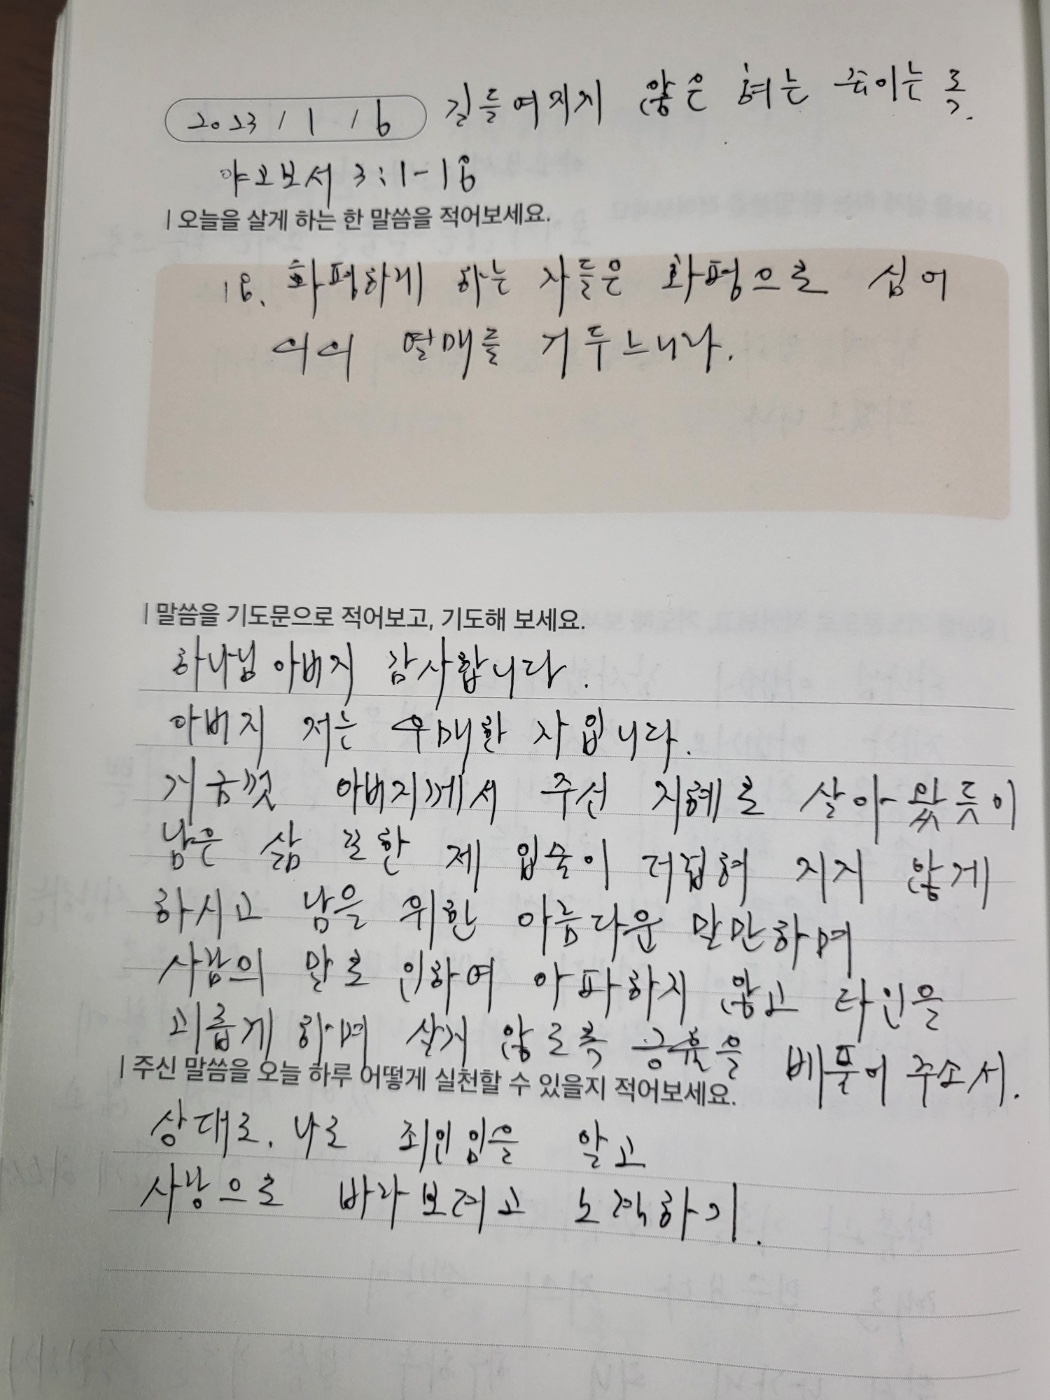 2023 / 1 / 6 길들여지지 않은 혀는 죽이는 독.
야고보서 3:1-18
| 오늘을 살게 하는 한 말씀을 적어보세요.
18. 화평하게 하는 자들은 화평으로 심어
의의 열매를 거두느니라.
| 말씀을 기도문으로 적어보고, 기도해 보세요.
하나님 아버지 감사합니다.
아버지 저는 우매한 자입니다.
지금껏 아버지께서 주신 지혜로 살아 왔듯이
남은 삶 또한 제 입술이 더럽혀 지지 않게
하시고 남을 위한 아름다운 말만하며
사람의 말로 인하여 아파하지 않고 타인을
괴롭게 하며 살지 않도록 긍휼을 베풀어 주소서.
| 주신 말씀을 오늘 하루 어떻게 실천할 수 있을지 적어보세요.
상대로, 나로 죄인임을 알고
사랑으로 바라보려고 노력하기.